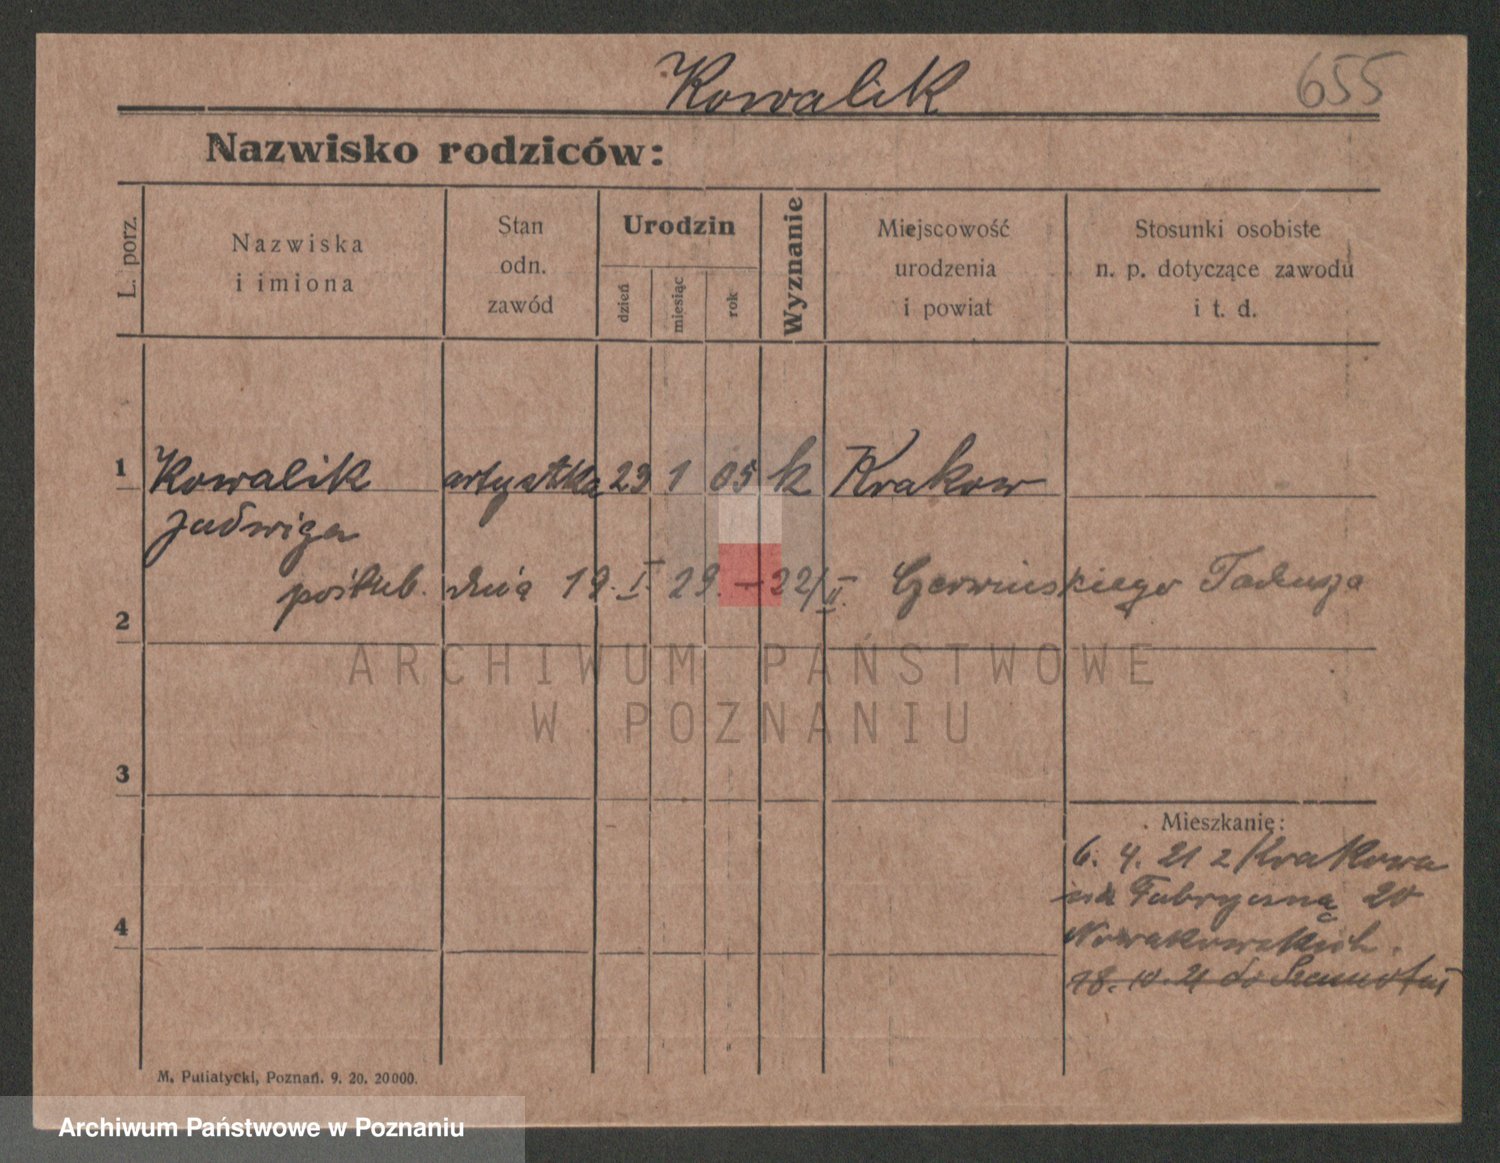 Kowalik 655
Nazwisko rodziców:
L. porz.
Nazwiska
i imiona
Stan
odn.
zawód
Urodzin
dzień
miesiąc
rok
Wyznanie
Miejscowość
urodzenia
i powiat
Stosunki osobiste
n. p. dotyczące zawodu
i t. d.
1 Kowalik artystka 29 1 05 k Krakow
Jadwiga
poślub. dnia 19. I. 29. – 22/II. Czerwińskiego Tadeusza
2
ARCHIWUM PAŃSTWOWE
W POZNANIU
3
Mieszkanie:
6. 4. 21 z Krakowa
na Fabryczną 20
4 Nowakowskich.
18. 10. 21 do Szamotuł
M. Putiatycki, Poznań. 9. 20. 20000.
Archiwum Państwowe w Poznaniu